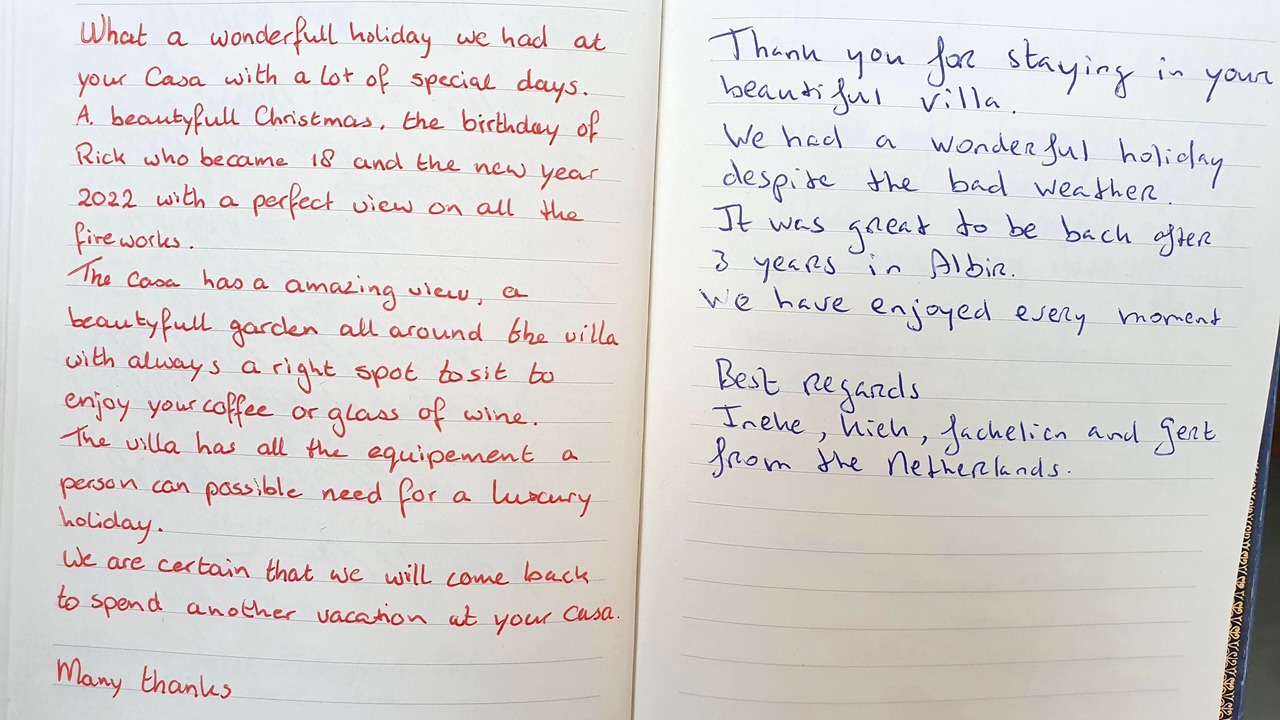 What a wonderfull holiday we had at
your Casa with a lot of special days.
A. beautyfull Christmas, the birthday of
Rick who became 18 and the new year
2022 with a perfect view on all the
fireworks.
The casa has a amazing view, a
beautyfull garden all around the villa
with always a right spot to sit to
enjoy your coffee or glass of wine.
The villa has all the equipement a
person can possible need for a luxury
holiday.
We are certain that we will come back
to spend another vacation at your casa.
Many thanks
Thank you for staying in your
beautiful villa.
We had a wonderful holiday
despite the bad weather.
It was great to be back after
3 years in Albir.
We have enjoyed every moment
Best regards
Ineke, and Gert
from the Netherlands.